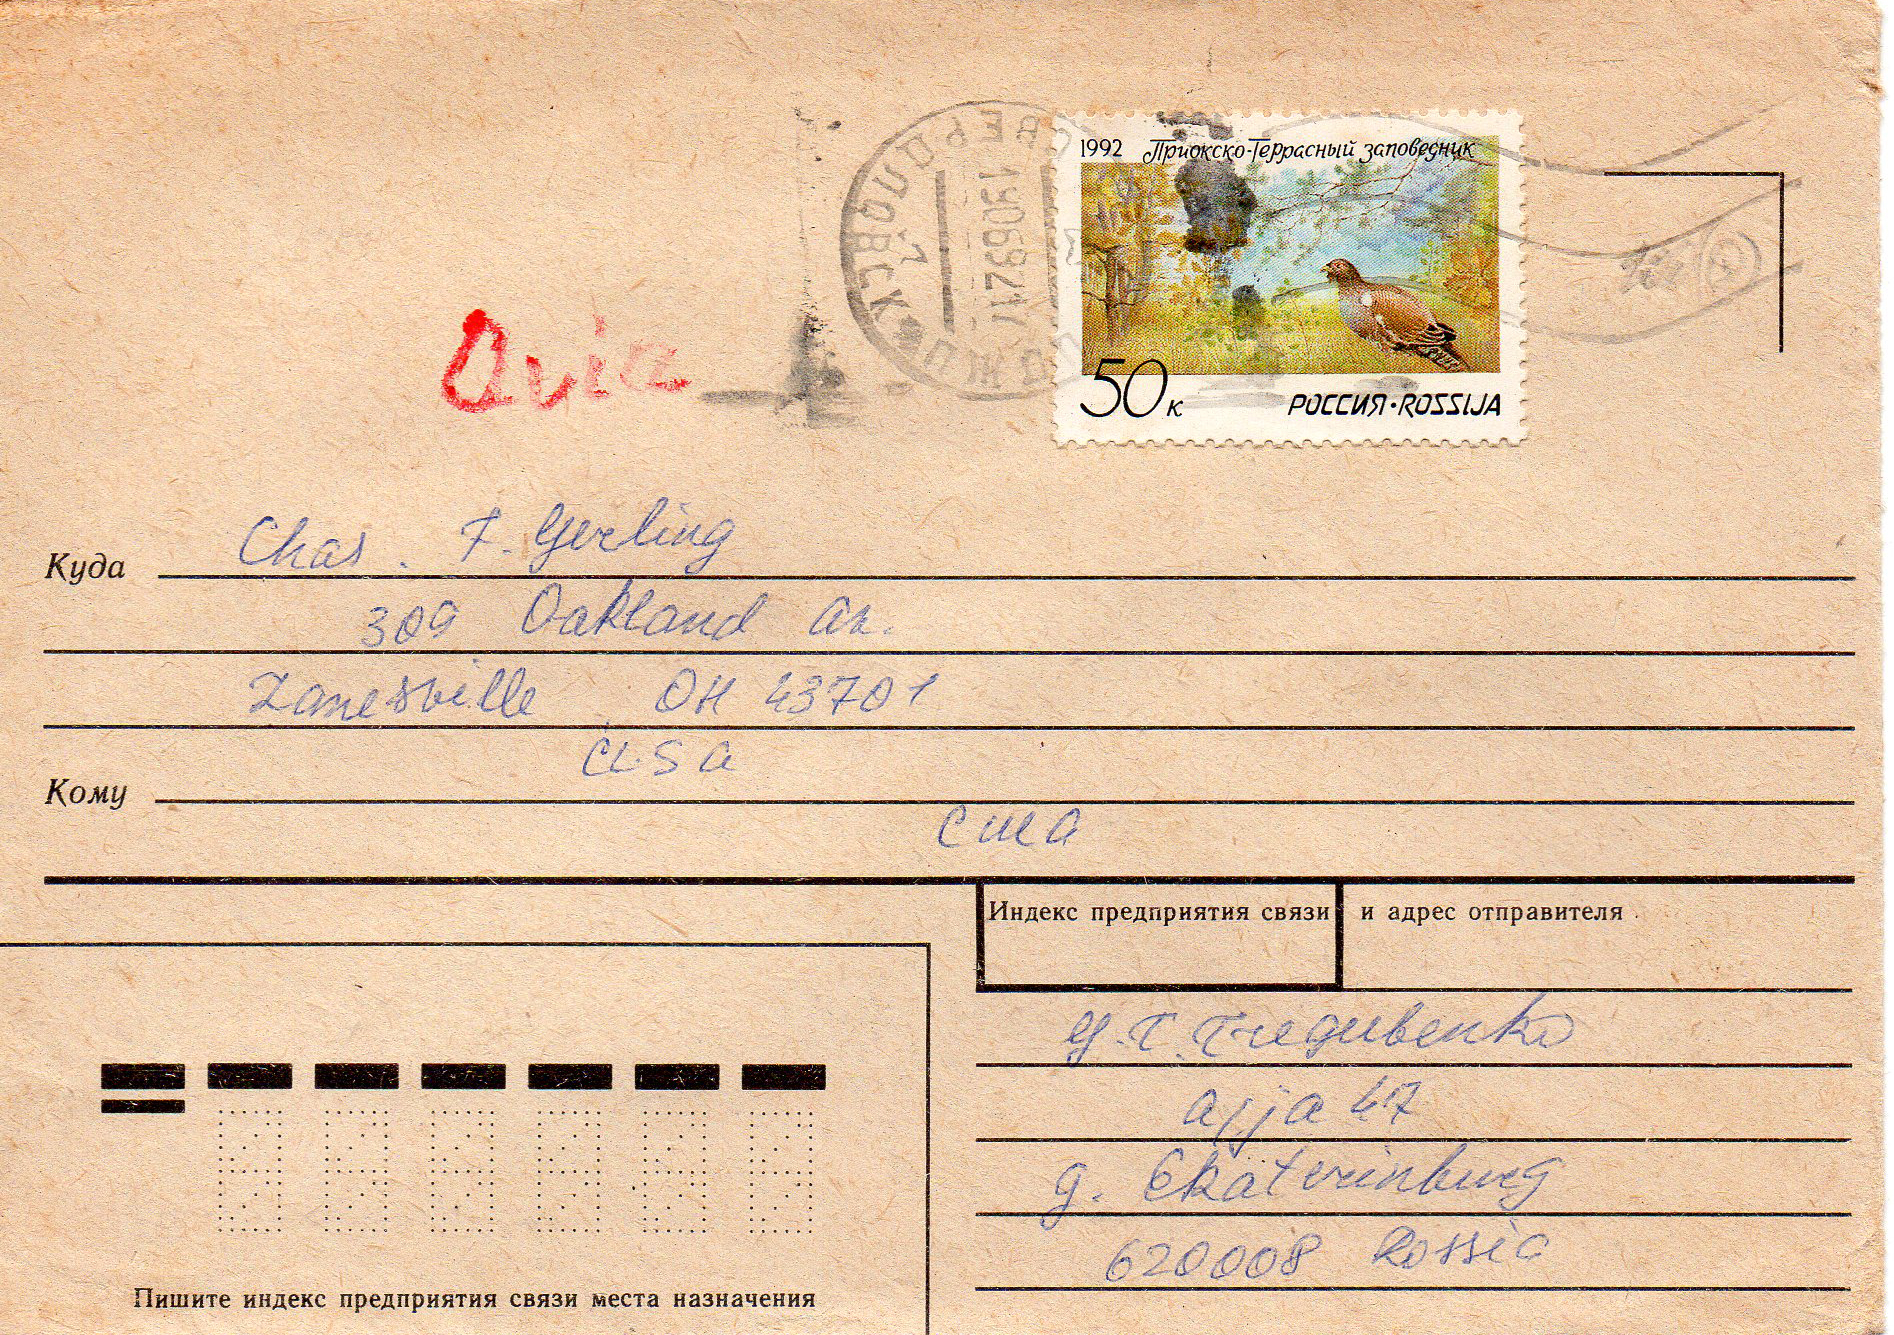 1992 Приокско-Террасный заповедник
50 к РОССИЯ•ROSSIJA
СВЕРДЛОВСК
ПЖДП
Avia
Куда Chas. F. Gerling
309 Oakland Av.
Zanesville OH 43701
USA
Кому
США
Индекс предприятия связи и адрес отправителя
Y. T. Tregubenko
a/ja 47
g. Ekaterinburg
620008 Rossia
Пишите индекс предприятия связи места назначения